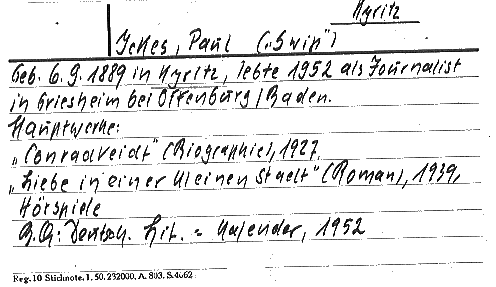 Kyritz
Ickes, Paul („Swip")
Geb. 6.9.1889 in Kyritz, lebte 1952 als Journalist
in Griesheim bei Offenburg/Baden.
Hauptwerke:
„Conradveidt" (Biographie), 1927,
„Liebe in einer kleinen Stadt" (Roman), 1939,
Hörspiele
B.Q: Deutsch. Lit. = Kalender, 1952
Reg. 10 Stichnote. 1. 50. 232000. A. 803. S. 4062